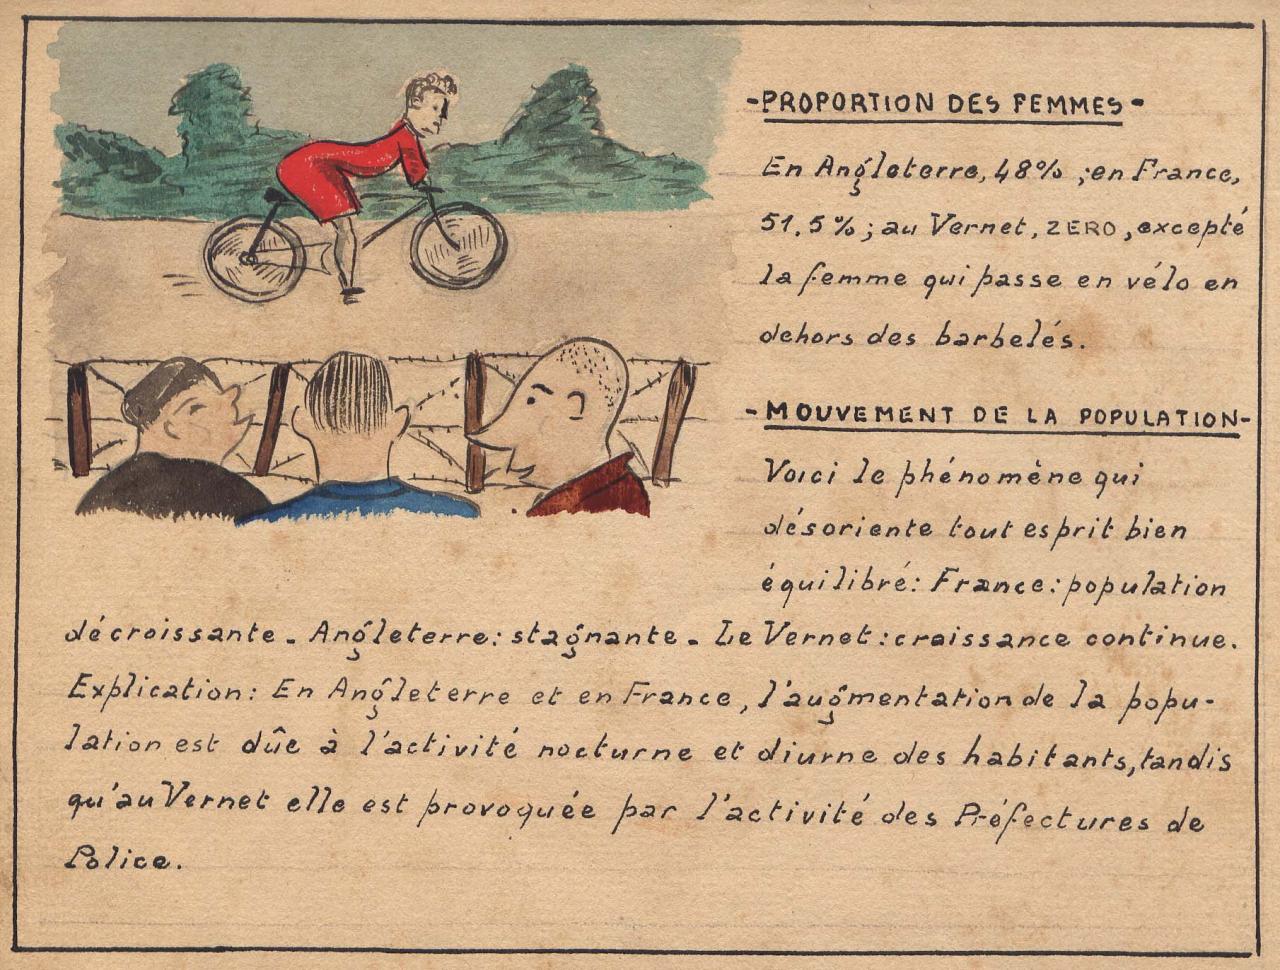 -PROPORTION DES FEMMES-
En Angleterre, 48% ; en France,
51,5% ; au Vernet, ZERO, excepté
la femme qui passe en vélo en
dehors des barbelés.
-MOUVEMENT DE LA POPULATION-
Voici le phénomène qui
désoriente tout esprit bien
équilibré: France: population
décroissante - Angleterre: stagnante - Le Vernet: croissance continue.
Explication: En Angleterre et en France, l'augmentation de la popu-
lation est dûe à l'activité nocturne et diurne des habitants, tandis
qu'au Vernet elle est provoquée par l'activité des Préfectures de
Police.